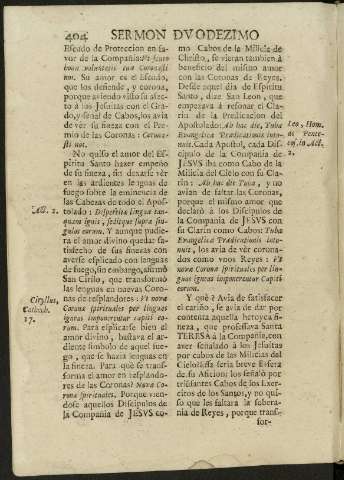 404 SERMON DVODEZIMO
Escudo de Proteccion en fa-
vor de la Compañia: Vt scuto
bonæ voluntatis tuæ coronasti
nos. Su amor es el Escudo,
que los defiende, y corona,
porque aviendo visto su afec-
to à los Jesuitas con el Gra-
do, y señal de Cabos, los avia
de vèr su fineza con el Pre-
mio de las Coronas: Corona-
sti nos.
No quiso el amor del Es-
piritu Santo hazer empeño
de su fineza, sin dexarse vèr
en las ardientes lenguas de
fuego sobre la eminencia de
las Cabezas de todo el Apos-
tolado: Dispertitæ linguæ tan-
quam ignis, seditque supra sin-
gulos eorum. Y aunque pudie-
ra el amor divino quedar sa-
tisfecho de sus finezas con
averse esplicado con lenguas
de fuego, sin embargo, afirmò
San Cirilo, que transformò
las lenguas en nuevas Coro-
nas de resplandores: Vt nova
Corona spirituales per linguas
igneas imponerentur capiti eo-
rum. Para esplicarse bien el
amor divino, bastava el ar-
diente simbolo de aquel fue-
go, que se hazia lenguas en
la fineza. Para què se trans-
forma el amor en resplando-
res de las Coronas? Nova Co-
rona spirituales. Porque vien-
dose aquellos Discipulos de
la Compañia de JESVS co-
Act. 2.
Ciryllus,
Cathech.
17.
mo Cabos de la Milicia de
Christo, se vieran tambien à
beneficio del mismo amor
con las Coronas de Reyes.
Desde aquel dia de Espiritu
Santo, dize San Leon, que
empezava à resonar el Cla-
rin de la Predicacion del
Apostolado: Ab hac die, Tuba
Evangelicæ Prædicationis into-
nuit. Cada Apostol, cada Dis-
cipulo de la Compañia de
JESVS iba como Cabo de la
Milicia del Cielo con su Cla-
rin: Ab hac die Tuba, y no
avian de faltar las Coronas,
porque el mismo amor que
declarò à los Discipulos de
la Compañia de JESVS con
su Clarin como Cabos: Tuba
Evangelicæ Prædicationis into-
nuit, los avia de vèr corona-
dos como vnos Reyes: Vt
nova Corona spirituales per lin-
guas igneas imponerentur Capiti
eorum.
Y què? Avia de satisfacer
el cariño, se avia de dàr por
contenta aquella heroyca fi-
neza, que professava Santa
TERESA à la Compañia, con
aver señalado à los Jesuitas
por cabos de las Milicias del
Cielo? Essa seria breve Esfera
de su Aficion: los señalò por
triunfantes Cabos de los Exer-
citos de los Santos, y no qui-
so que les faltara la sobera-
nia de Reyes, porque trans-
for-
Leo, Hom.
de Pente-
cost. in Act.
2.